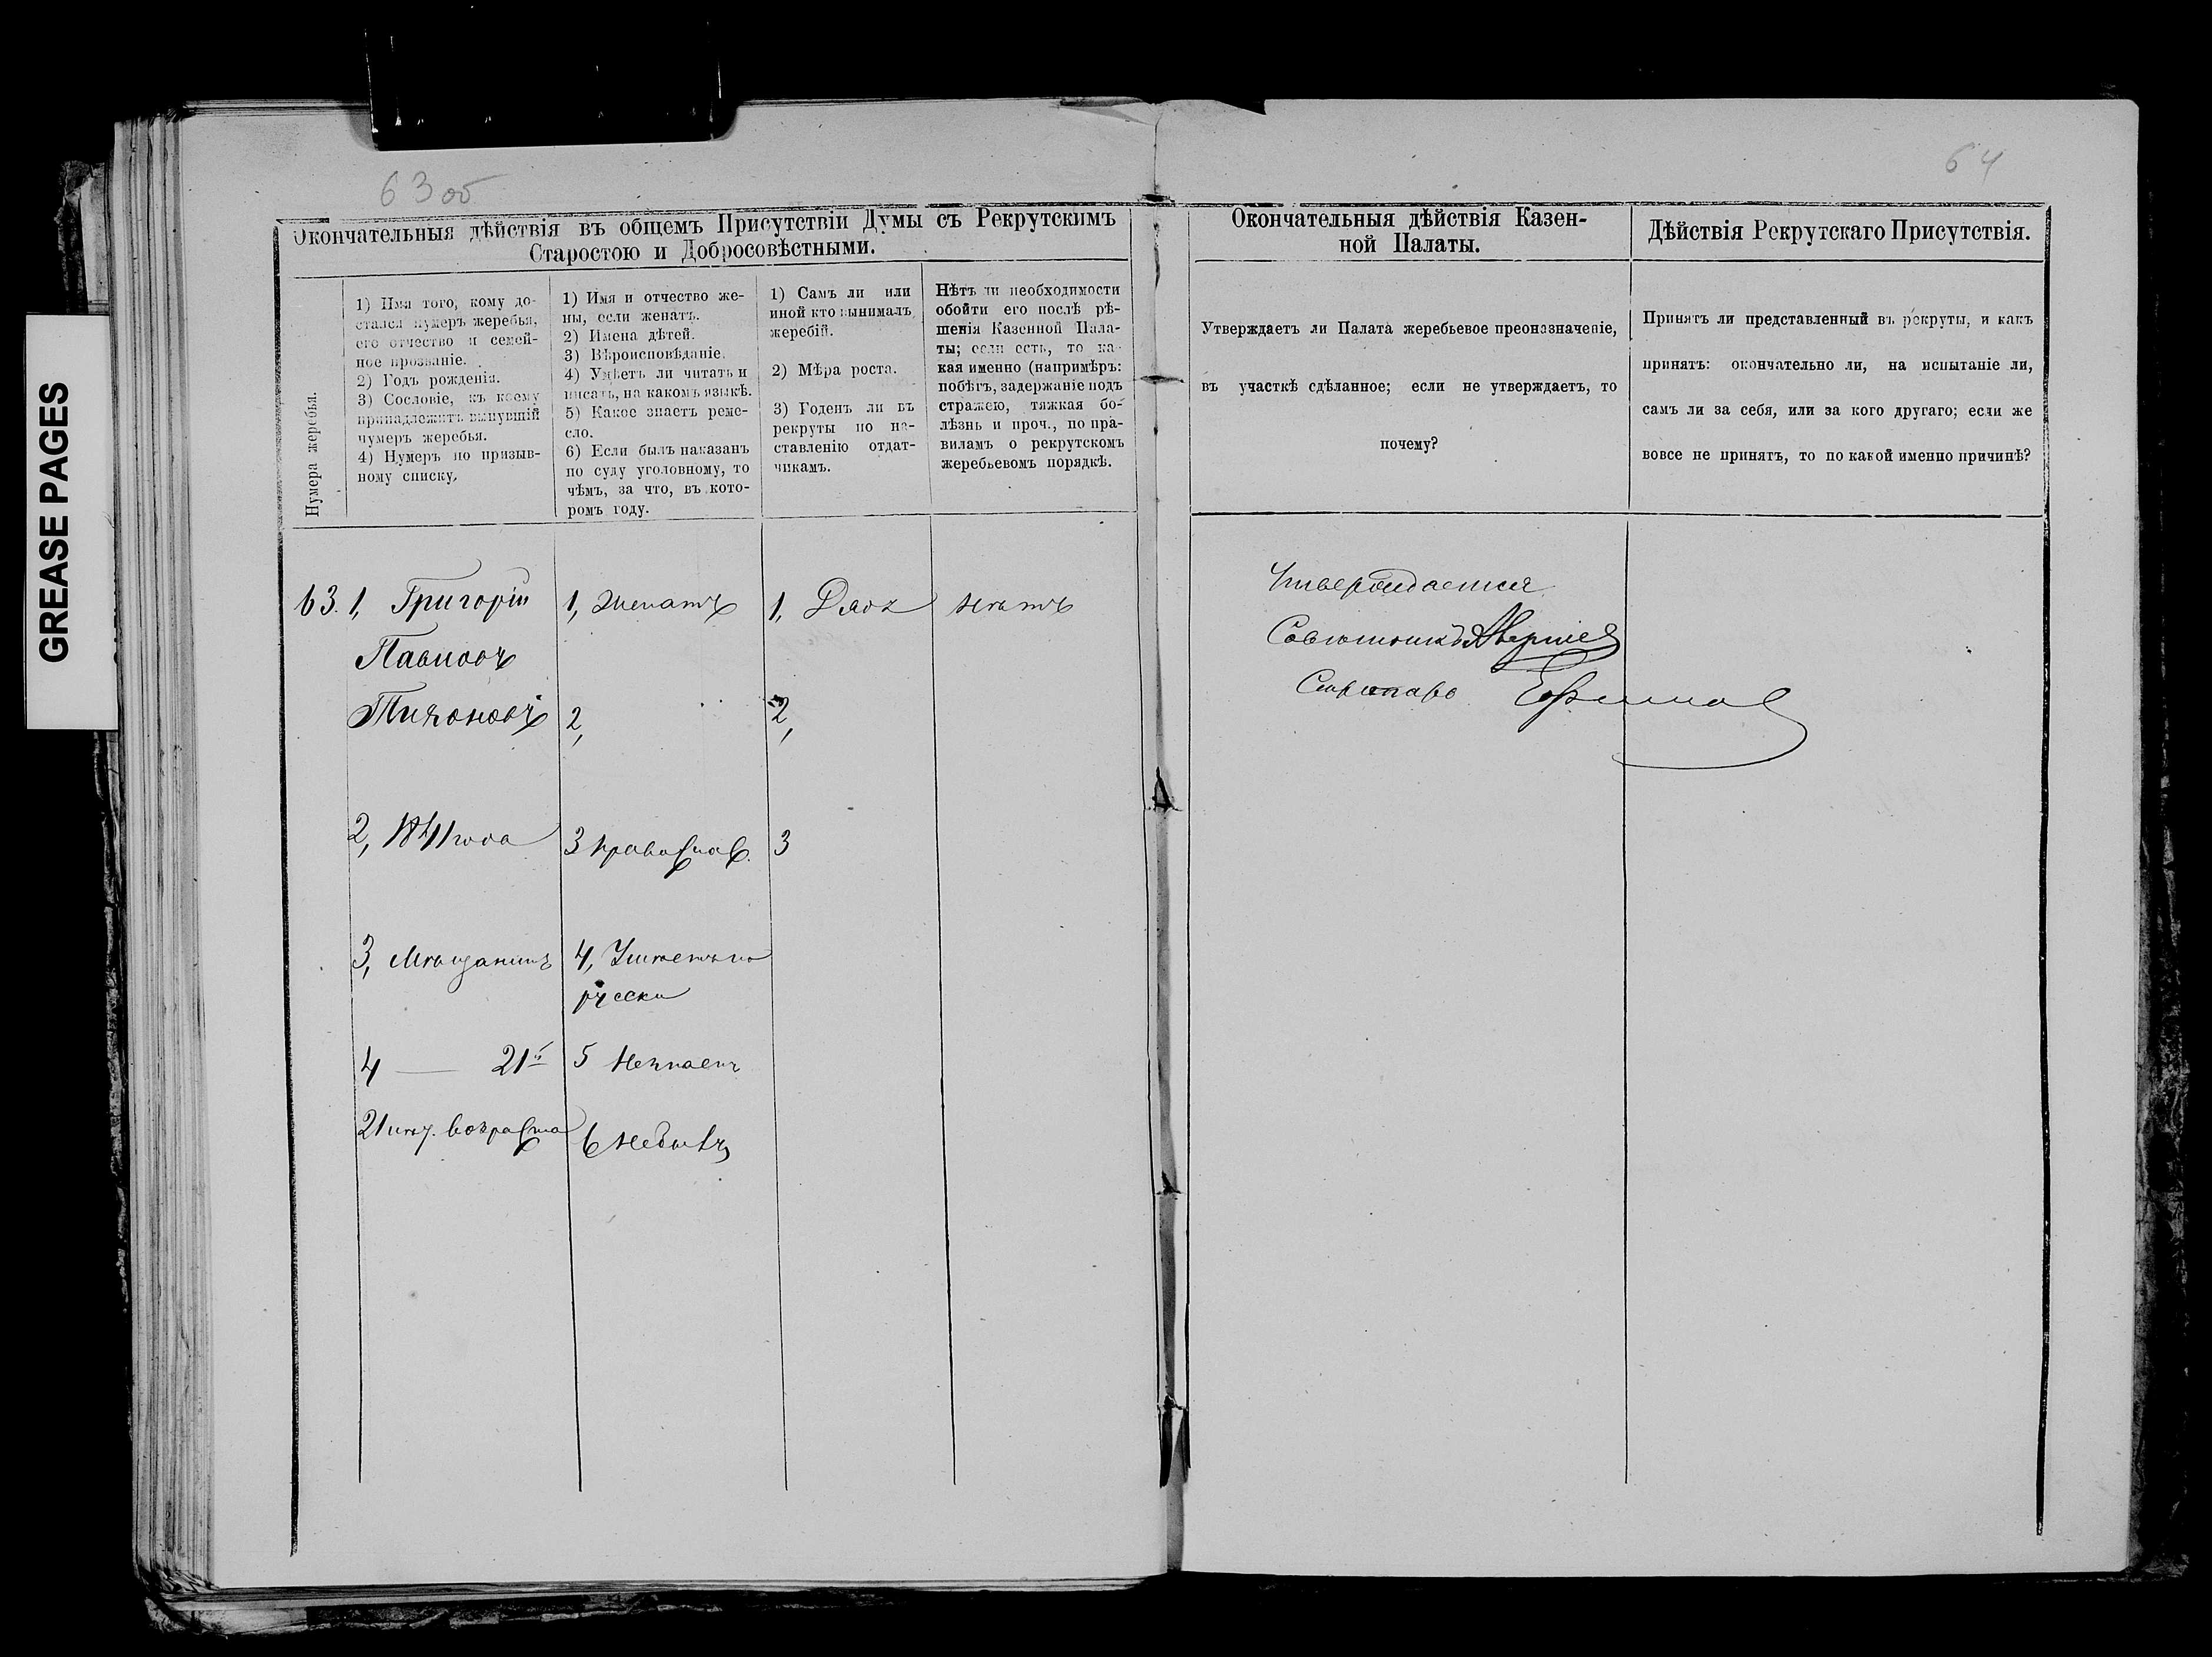 GREASE PAGES
63 об
64
Окончательныя дѣйствія въ общемъ Присутствіи Думы съ Рекрутскимъ
Старостою и Добросовѣстными.
Нумера жеребья.
1) Имя того, кому до-
стался нумеръ жеребья,
его отчество и семей-
ное прозваніе.
2) Годъ рожденія.
3) Сословіе, къ коему
принадлежитъ вынувшій
нумеръ жеребья.
4) Нумеръ по призыв-
ному списку.
1) Имя и отчество же-
ны, если женатъ.
2) Имена дѣтей.
3) Вѣроисповѣданіе.
4) Умѣетъ ли читать и
писать, на какомъ языкѣ.
5) Какое знаетъ реме-
сло.
6) Если былъ наказанъ
по суду уголовному, то
чѣмъ, за что, въ кото-
ромъ году.
1) Самъ ли или
иной кто вынималъ
жеребій.
2) Мѣра роста.
3) Годенъ ли въ
рекруты по на-
ставленію отдат-
чикамъ.
Нѣтъ ли необходимости
обойти его послѣ рѣ-
шенія Казенной Пала-
ты; если есть, то ка-
кая именно (напримѣръ:
побѣгъ, задержаніе подъ
стражею, тяжкая бо-
лѣзнь и проч., по пра-
виламъ о рекрутскомъ
жеребьевомъ порядкѣ.
63. 1, Григорій
Павловъ
Тихоновъ
2, 1841 года
3, Мѣщанинъ
4 — 21й
21 возраста
1, Женатъ
2,
3 Православ.
4, Умѣетъ по
русски
5 Незнаетъ
6 Небылъ
1, Дядя
2,
3
нѣтъ
Окончательныя дѣйствія Казен-
ной Палаты.
Утверждаетъ ли Палата жеребьевое преоназначеніе,
въ участкѣ сдѣланное; если не утверждаетъ, то
почему?
Утверждается
Совѣтникъ
Секретарь Ефимов
Дѣйствія Рекрутскаго Присутствія.
Принятъ ли представленный въ рекруты, и какъ
принятъ: окончательно ли, на испытаніе ли,
самъ ли за себя, или за кого другаго; если же
вовсе не принятъ, то по какой именно причинѣ?